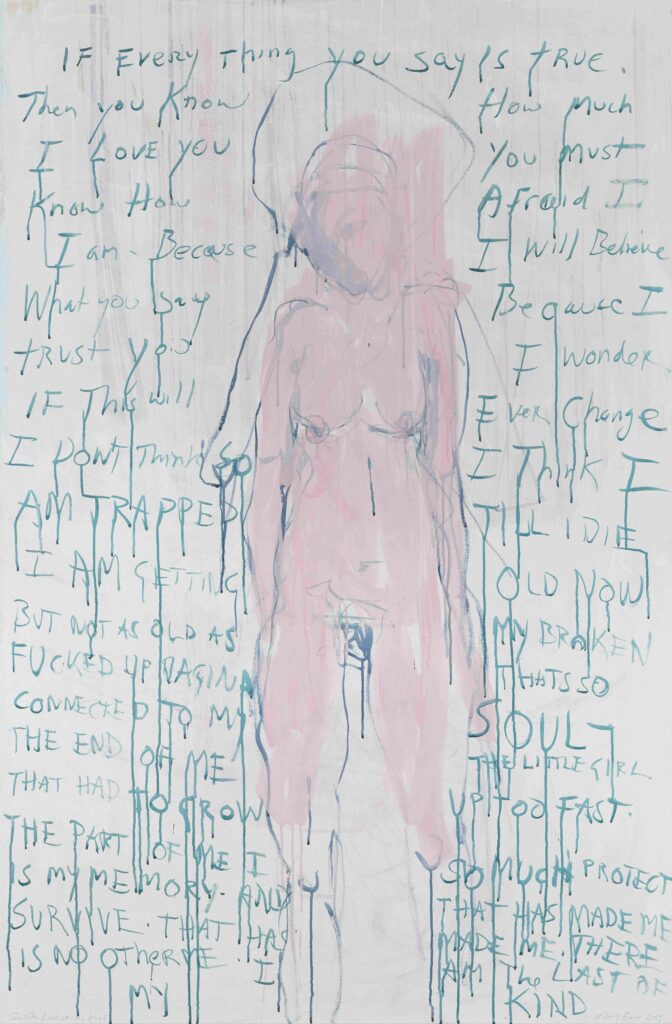 IF Every Thing you say is true.
Then you Know How much
I LOVE YOU You must
Know How Afraid I
I am - Because I Will Believe
What you Say Because I
trust you I wonder
IF This will Ever Change
I Dont Think So I Think I
AM TRAPPED TILL I DIE
I AM GETTING OLD NOW
BUT NOT AS OLD AS MY BROKEN
FUCKED UP VAGINA THATS SO
CONNECTED TO MY SOUL -
THE END OF ME THE LITTLE GIRL
THAT HAD TO GROW UP TOO FAST.
THE PART OF ME I SO MUCH PROTECT
IS MY MEMORY. AND THAT HAS MADE ME
SURVIVE. THAT HAS MADE ME. THERE
IS NO OTHER ME. I AM The LAST OF
MY KIND